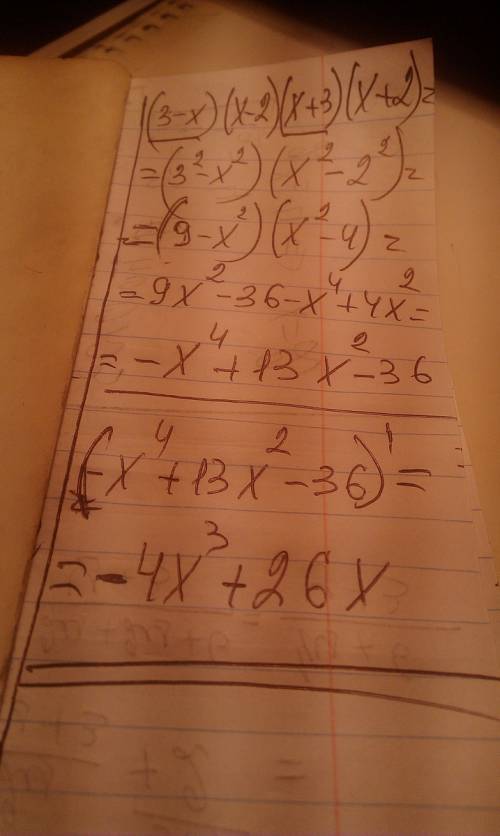 (3-x)(x-2)(x+3)(x+2)=
=(3²-x²)(x²-2²)=
=(9-x²)(x²-4)=
=9x²-36-x⁴+4x²=
=-x⁴+13x²-36
(-x⁴+13x²-36)'=
=-4x³+26x